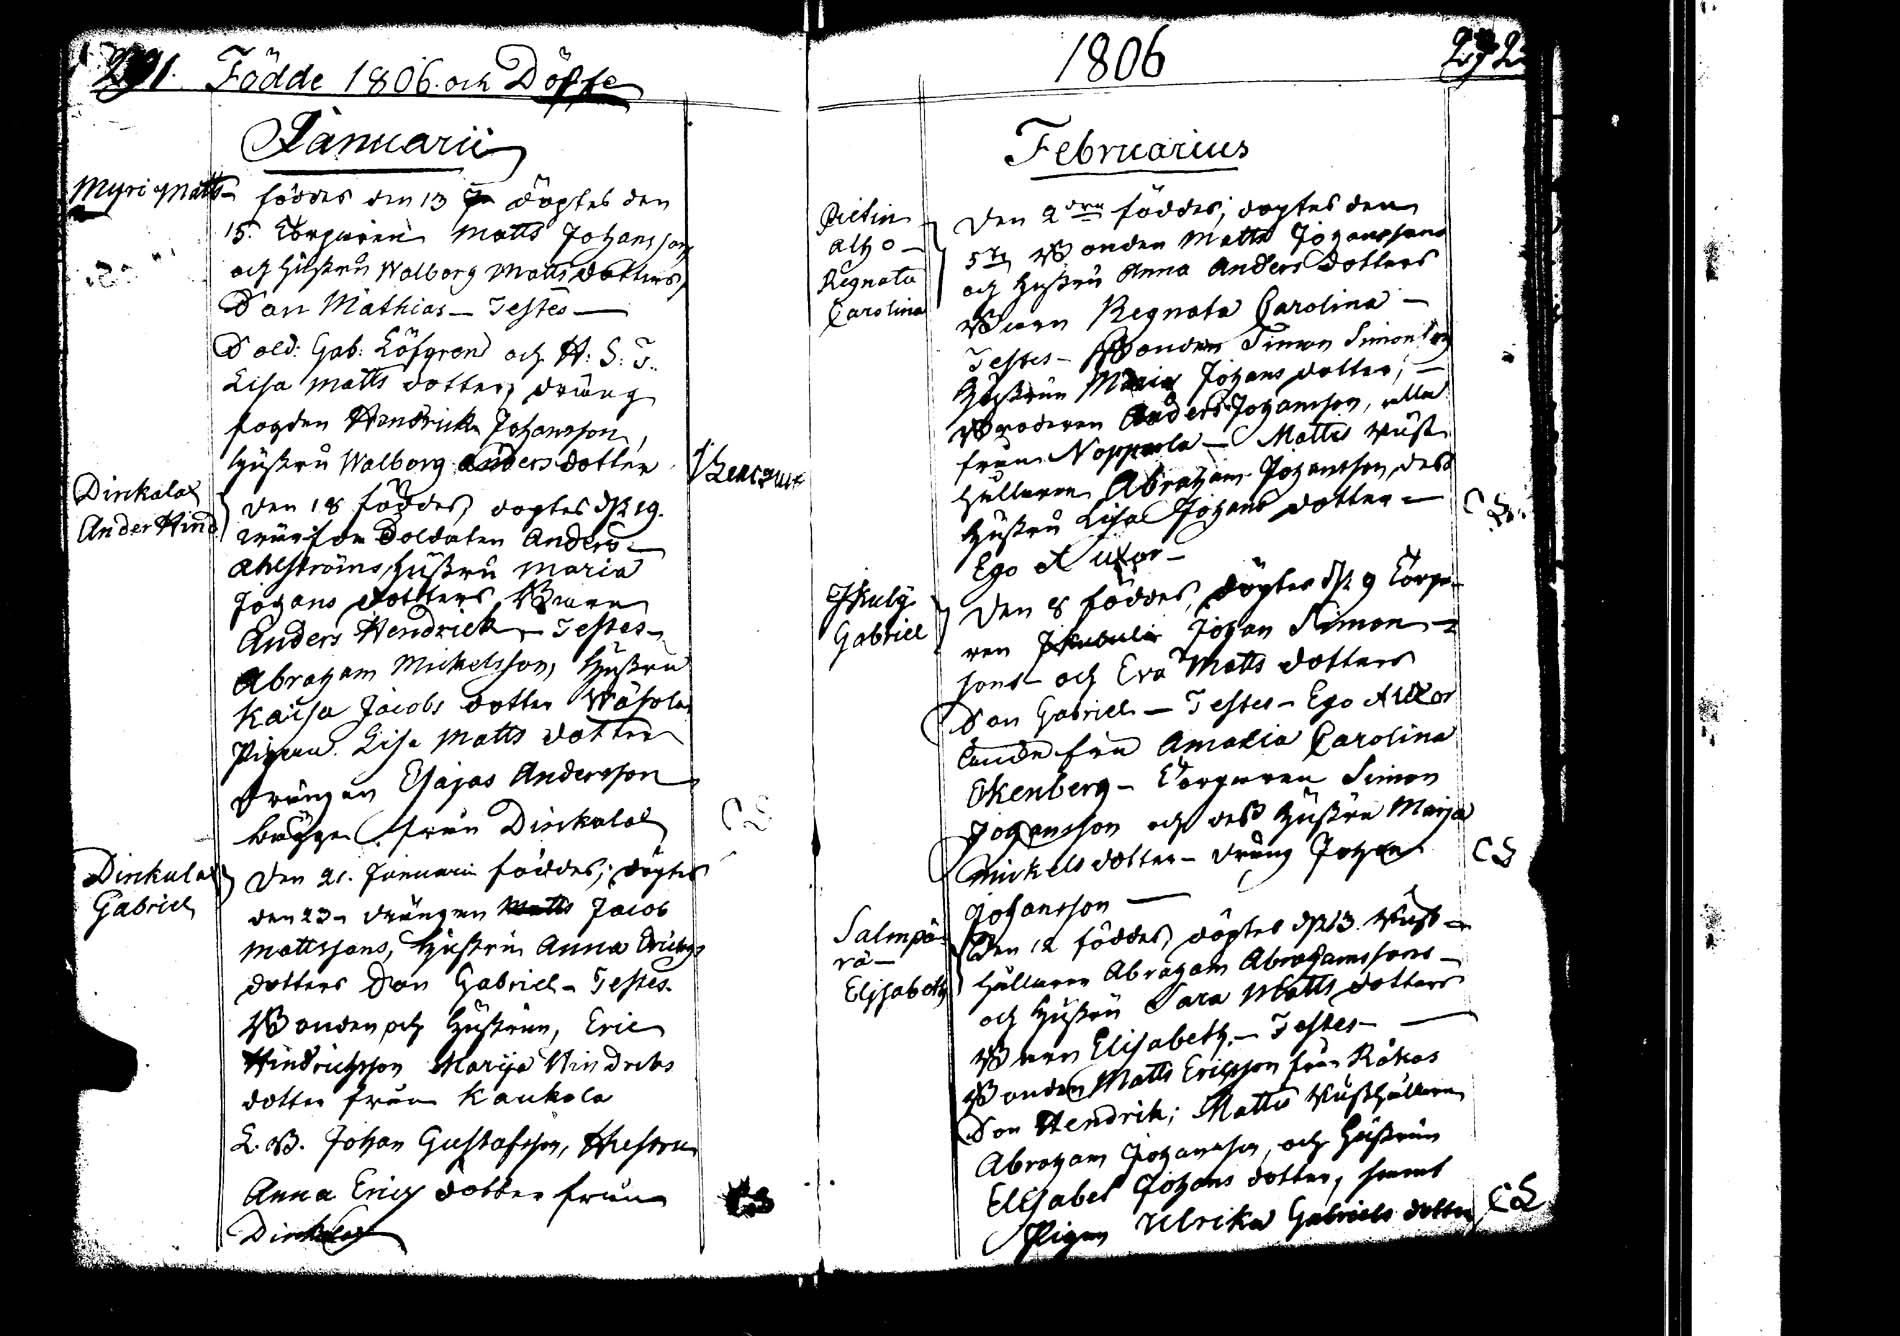 291. Födde 1806. och Döpte
Januarii
Myri Matts
föddes den 13 döptes den
15. Torparen Matts Johansson
och Hustru Walborg Matts dotters
Son Mathias — Testes —
Sold: Gab: Löfgren och H: S: T:
Lisa Matts dotter, dräng
fogden Hendrick Johansson,
Hustru Walborg Anders dotter
Dinkala
Ander Hind
den 18 föddes, döptes d. 19.
Soldaten Anders
Ahlströms, Hustru Maria
Johans dotters, Barn
Anders Hendrick — Testes —
Abraham Mickelsson, Hustru
Kaisa Jacobs dotter
Pigan Lisa Matts dotter
drängen Esajas Andersson
bägge från Dinkala
Dinkala
Gabriel
den 21. Januarii föddes; döptes
den 23 — drängen Jacob
Mattssons, Hustru Anna Erichs
dotters Son Gabriel — Testes.
Bonden och Hustrun, Eric
Hindrichsson Marija Hindriks
dotter från Kaukola
L. B. Johan Gustafsson, Hustru
Anna Erics dotter från
Dinkala
1806
292
Februarius
Pietin
alho —
Regnata
Carolina
Den 2dra föddes; döptes den
5te Bonden Matts Johanssons
och Hustru Anna Anders dotters
Barn Regnata Carolina —
Testes — Bonden Simon Simonsson
Hustrun Maria Johans dotter; —
Brodern Anders Johansson, alla
från Nopperla — Matts
hållaren Abraham Johansson, dess
Hustru Lisa Johans dotter —
Ego & Uxor —
CS
Gabriel
Den 8 föddes, döptes d. 9 Torpa-
ren Johan Simon-
sons och Eva Matts dotters
Son Gabriel — Testes — Ego & Uxor
Amalia Carolina
Ekenberg — Torparen Simon
Johansson och dess Hustru Marja
Mickels dotter — dräng Johan
Johansson —
CS
Salmpä-
rä —
Elisabeth
Den 12 föddes, döptes d. 13.
hållaren Abraham Abrahamssons —
och Hustru Sara Matts dotters
Barn Elisabeth. — Testes —
Bonden Matts Ericsson från Råkas
Son Hendrik; Matts
Abraham Johansson, och Hustrun
Elisabet Johans dotter, samt
Pigan Ulrika Gabriels dotter
CS